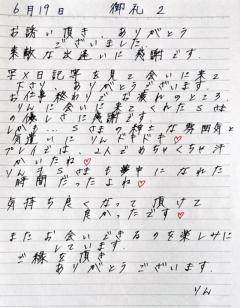 6月19日 御礼 2
お誘い頂き ありがとう
ございました
素敵な出逢いに感謝です.
写メ日記等を見て会いに来て
下さり ありがとう ございます.
お仕事終わりで お疲れのところ
りんに会いに来てくれたSさま
の優しさに感謝です
しかも… Sさまの紳士な雰囲気と
気遣いに りんドキドキ♡
プレイでは 2人で めちゃくちゃ汗
かいたね♡
りんもSさまも夢中になれた
時間だったよね♡
気持ち良くなって頂けて
良かったです♡
またお会いできるのを楽しみに
しています.
ご縁を頂き
ありがとうございます.
りん